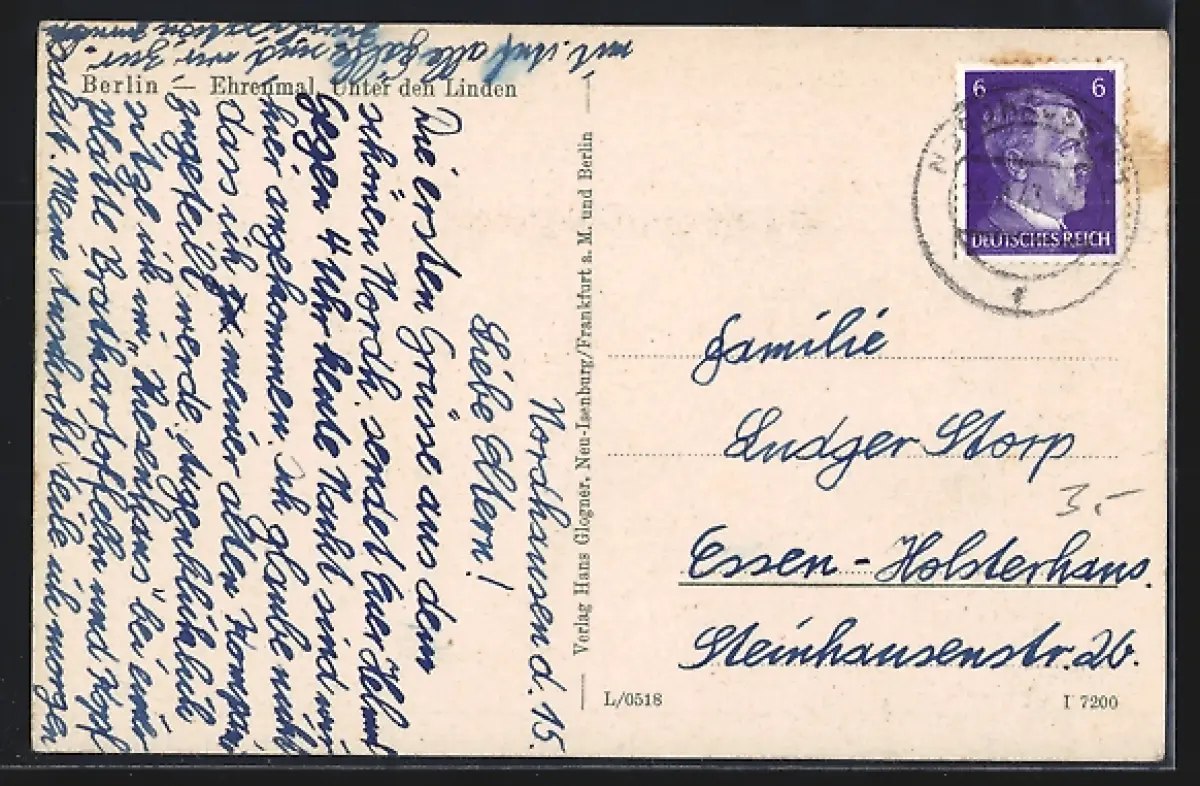 Berlin — Ehrenmal, Unter den Linden
Nordhausen d. 15.
Liebe Eltern!
Die ersten Grüsse aus dem
schönen Nordh. sendet Euer Helmut
Gegen 4 Uhr heute Nacht sind wir
hier angekommen. Ich glaube nicht
dass ich meiner alten Kompanie
zugeteilt werde. Augenblicklich
sitze ich im „Riesenhaus" bei einer
platte Bratkartoffeln und Kopf
salat. Meine Anschrift teile ich morgen
mit. auf alle fälle sind wir zur
Verlag Hans Glogner, Neu-Isenburg/Frankfurt a. M. und Berlin
6 6
DEUTSCHES REICH
Familie
Ludger Storp
3.-
Essen - Holsterhaus.
Steinhausenstr. 26.
L/0518
I 7200